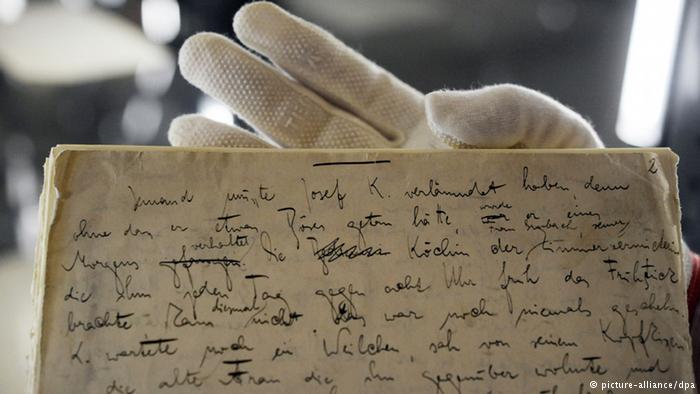 2
Jemand musste Josef K. verläumdet haben denn
ohne dass er etwas Böses getan hätte, wurde er eines
Frau Grubach, seiner,
verhaftet
Morgens gefangen. Die Köchin der Zimmervermieterin
die ihm jeden Tag gegen acht Uhr früh das Frühstück
diesmal
brachte kam nicht. Das war noch niemals geschehn.
K. wartete noch ein Weilchen, sah von seinem Kopfkissen
die alte Frau die ihm gegenüber wohnte und
© picture-alliance/dpa